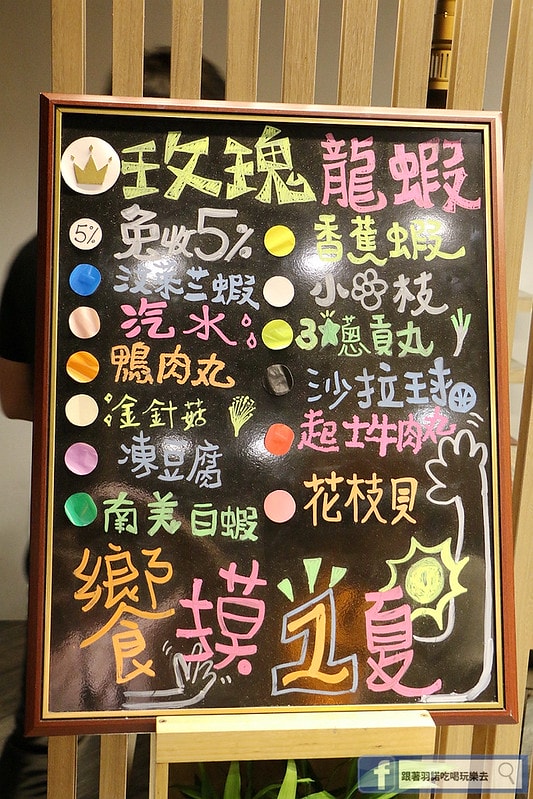 玫瑰龍蝦
5% 免收5%
汶萊藍蝦
汽水
鴨肉丸
金針菇
凍豆腐
南美白蝦
香蕉蝦
小花枝
3星蔥貢丸
沙拉球
起士牛肉丸
花枝貝
饗摸1夏
f 跟著羽諾吃喝玩樂去